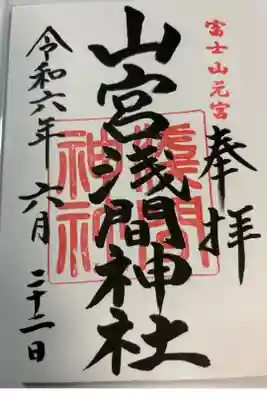 富士山元宮
奉拝
山宮浅間神社
令和六年 六月 二十二日
浅間神社